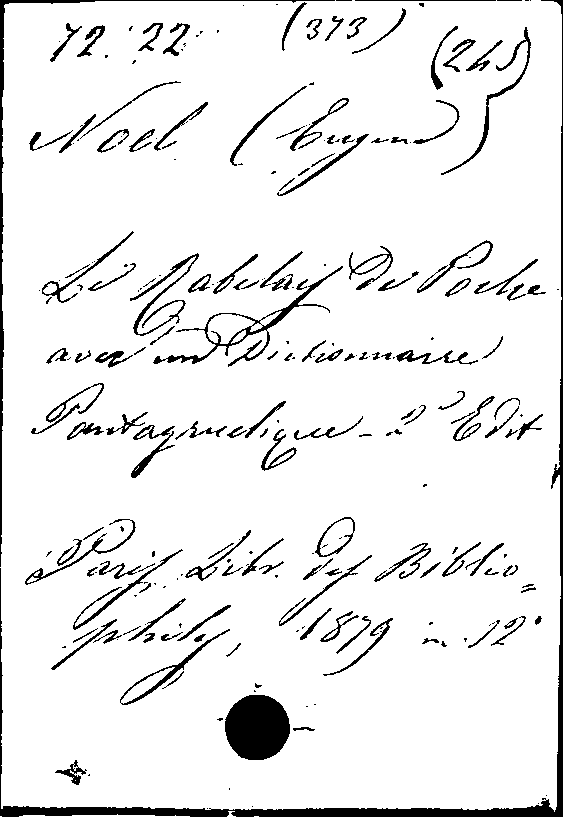 72. 22 (373) (245)
Noel (Eugene)
Le Rabelais De Poche
avec un Dictionnaire
Pantagruelique - 2e Edit
Paris, Libr. des Biblio=
philes, 1879 in-12°